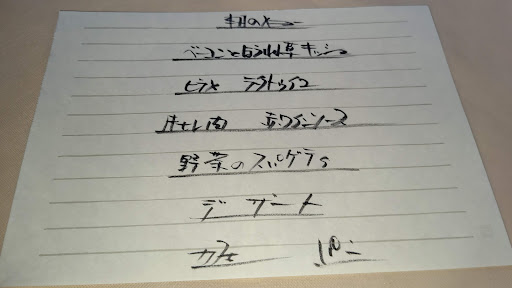 ベーコンとほうれん草キッシュ
ヒラメ ラタトゥイユ
牛ヒレ肉 赤ワインソース
野菜のスパゲティ
デザート
カフェ